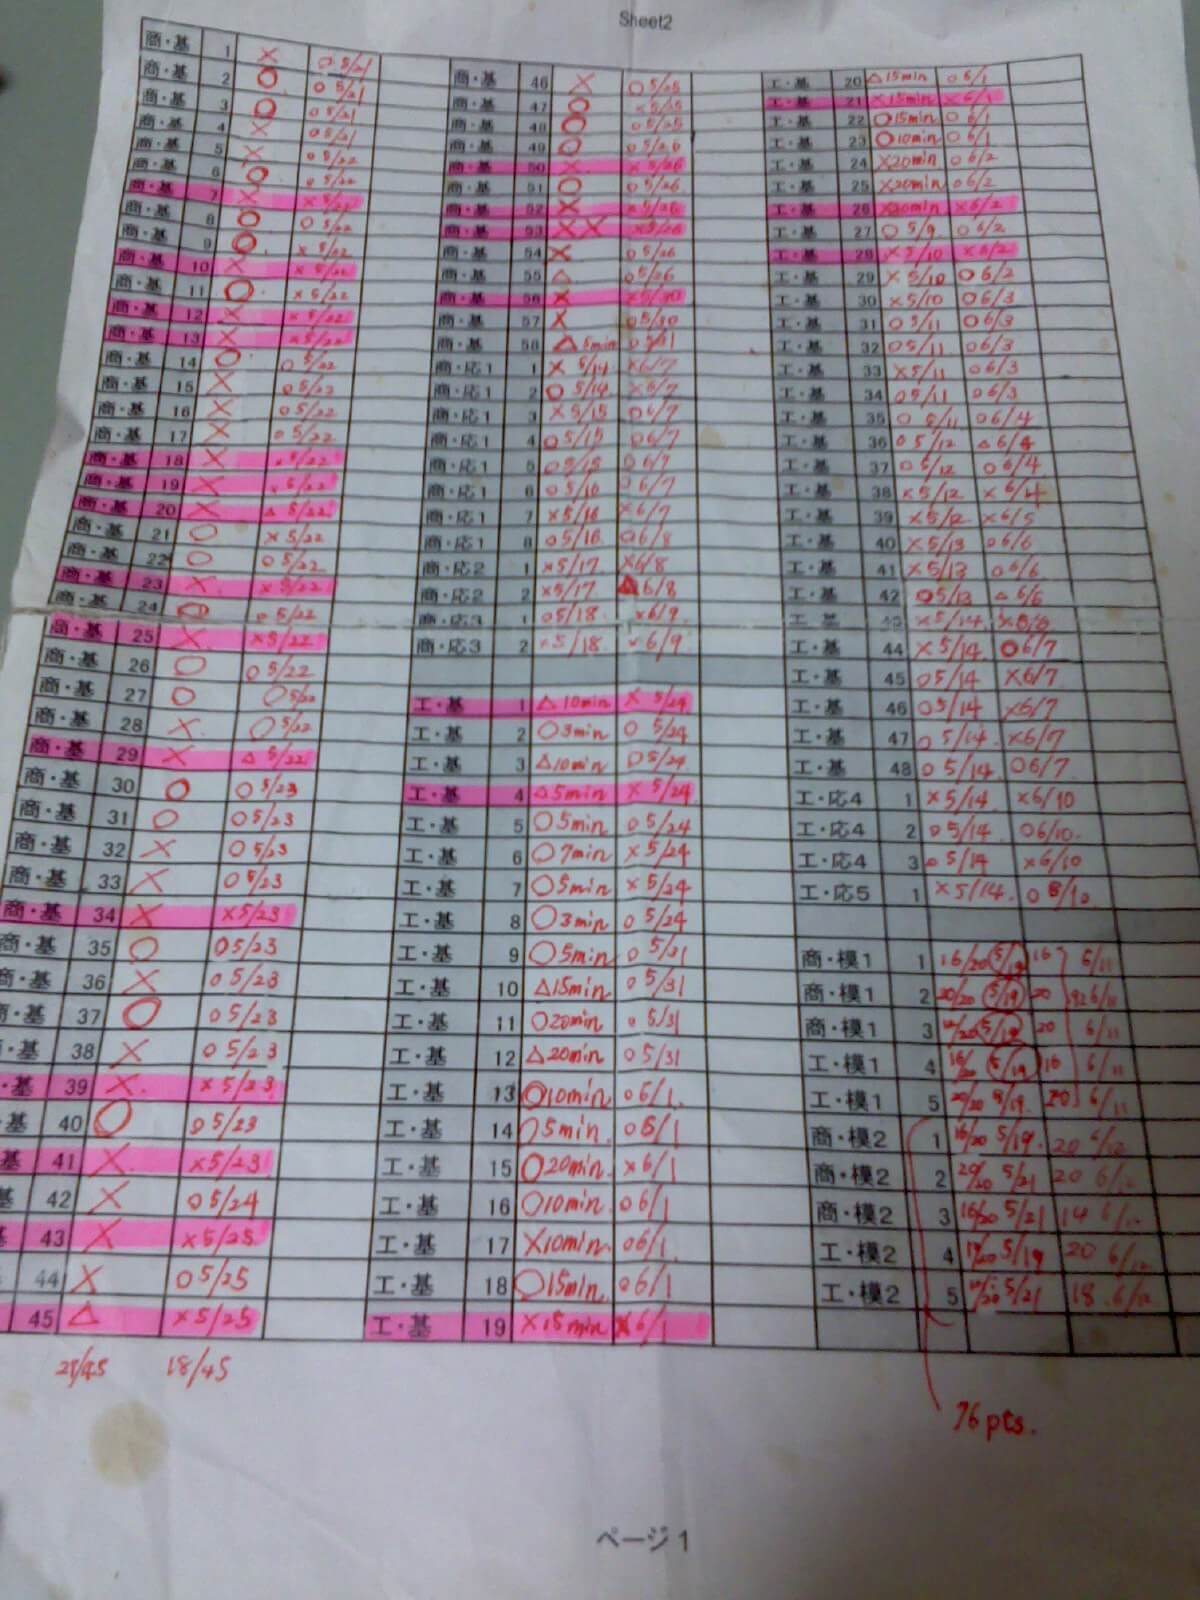 Sheet2
商・基 1 × ○ 5/21
商・基 2 ○ ○ 5/21
商・基 3 ○ ○ 5/21
商・基 4 × ○ 5/21
商・基 5 × ○ 5/22
商・基 6 ○ ○ 5/22
商・基 7 × × 5/22
商・基 8 ○ ○ 5/22
商・基 9 ○ × 5/22
商・基 10 × × 5/22
商・基 11 ○ × 5/22
商・基 12 × × 5/22
商・基 13 × × 5/22
商・基 14 ○ ○ 5/22
商・基 15 × ○ 5/22
商・基 16 × ○ 5/22
商・基 17 × ○ 5/22
商・基 18 × × 5/22
商・基 19 × × 5/22
商・基 20 × △ 5/22
商・基 21 ○ × 5/22
商・基 22 ○ ○ 5/22
商・基 23 × × 5/22
商・基 24 ○ ○ 5/22
商・基 25 × × 5/22
商・基 26 ○ ○ 5/22
商・基 27 ○ ○ 5/22
商・基 28 × ○ 5/22
商・基 29 × △ 5/22
商・基 30 ○ ○ 5/23
商・基 31 ○ ○ 5/23
商・基 32 × ○ 5/23
商・基 33 × ○ 5/23
商・基 34 × × 5/23
商・基 35 ○ ○ 5/23
商・基 36 × ○ 5/23
商・基 37 ○ ○ 5/23
・基 38 × ○ 5/23
・基 39 × × 5/23
・基 40 ○ ○ 5/23
基 41 × × 5/23
基 42 × ○ 5/24
基 43 × × 5/25
44 × ○ 5/25
45 △ × 5/25
18/45
商・基 46 × ○ 5/25
商・基 47 ○ × 5/25
商・基 48 ○ ○ 5/25
商・基 49 ○ ○ 5/26
商・基 50 × × 5/26
商・基 51 ○ ○ 5/26
商・基 52 × × 5/26
商・基 53 ×× × 5/26
商・基 54 × ○ 5/26
商・基 55 △ ○ 5/26
商・基 56 × × 5/30
商・基 57 × ○ 5/30
商・基 58 △ 5min ○ 5/31
商・応1 1 × 5/14 × 6/7
商・応1 2 ○ 5/14 × 6/7
商・応1 3 × 5/15 ○ 6/7
商・応1 4 ○ 5/15 ○ 6/7
商・応1 5 ○ 5/15 ○ 6/7
商・応1 6 ○ 5/16 ○ 6/7
商・応1 7 × 5/16 × 6/7
商・応1 8 ○ 5/16 ○ 6/8
商・応2 1 × 5/17 × 6/8
商・応2 2 × 5/17 ▲ 6/8
商・応3 1 ○ 5/18 × 6/9
商・応3 2 5/18 × 6/9
工・基 1 △ 10min × 5/24
工・基 2 ○ 3min ○ 5/24
工・基 3 △ 10min ○ 5/24
工・基 4 △ 5min × 5/24
工・基 5 ○ 5min ○ 5/24
工・基 6 ○ 7min × 5/24
工・基 7 ○ 5min × 5/24
工・基 8 ○ 3min ○ 5/24
工・基 9 ○ 5min ○ 5/31
工・基 10 △ 15min ○ 5/31
工・基 11 ○ 20min ○ 5/31
工・基 12 △ 20min ○ 5/31
工・基 13 ○ 10min ○ 6/1
工・基 14 ○ 5min ○ 6/1
工・基 15 ○ 20min × 6/1
工・基 16 ○ 10min ○ 6/1
工・基 17 × 10min ○ 6/1
工・基 18 ○ 15min ○ 6/1
工・基 19 × 15min × 6/1
工・基 20 △ 15min ○ 6/1
工・基 21 × 15min × 6/1
工・基 22 ○ 15min ○ 6/1
工・基 23 ○ 10min ○ 6/1
工・基 24 × 20min ○ 6/2
工・基 25 × 20min ○ 6/2
工・基 26 × × 6/2
工・基 27 ○ 5/9 ○ 6/2
工・基 28 × 5/10 × 6/2
工・基 29 × 5/10 ○ 6/2
工・基 30 × 5/10 ○ 6/3
工・基 31 ○ 5/11 ○ 6/3
工・基 32 ○ 5/11 ○ 6/3
工・基 33 × 5/11 ○ 6/3
工・基 34 ○ 5/11 ○ 6/3
工・基 35 ○ 5/11 ○ 6/4
工・基 36 ○ 5/12 △ 6/4
工・基 37 ○ 5/12 ○ 6/4
工・基 38 × 5/12 × 6/4
工・基 39 × 5/12 × 6/5
工・基 40 × 5/13 ○ 6/6
工・基 41 × 5/13 ○ 6/6
工・基 42 ○ 5/13 △ 6/6
工・基 43 × 5/14 ×
工・基 44 × 5/14 ○ 6/7
工・基 45 ○ 5/14 × 6/7
工・基 46 ○ 5/14 × 6/7
工・基 47 ○ 5/14 × 6/7
工・基 48 ○ 5/14 ○ 6/7
工・応4 1 × 5/14 × 6/10
工・応4 2 ○ 5/14 ○ 6/10
工・応4 3 ○ 5/14 × 6/10
工・応5 1 × 5/14 ○
商・模1 1 16/20 5/19 16 6/11
商・模1 2 20/20 5/19 20 92 6/11
商・模1 3 5/19 20 6/11
工・模1 4 16/20 5/19 16 6/11
工・模1 5 20/20 5/19 20 6/11
商・模2 1 16/20 5/19 20 6/12
商・模2 2 20/20 5/21 20 6/12
商・模2 3 16/20 5/21 14 6/12
工・模2 4 5/19 20 6/12
工・模2 5 5/21 18 6/12
76 pts.
ページ 1